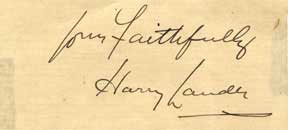 Yours Faithfully
Harry Lauder